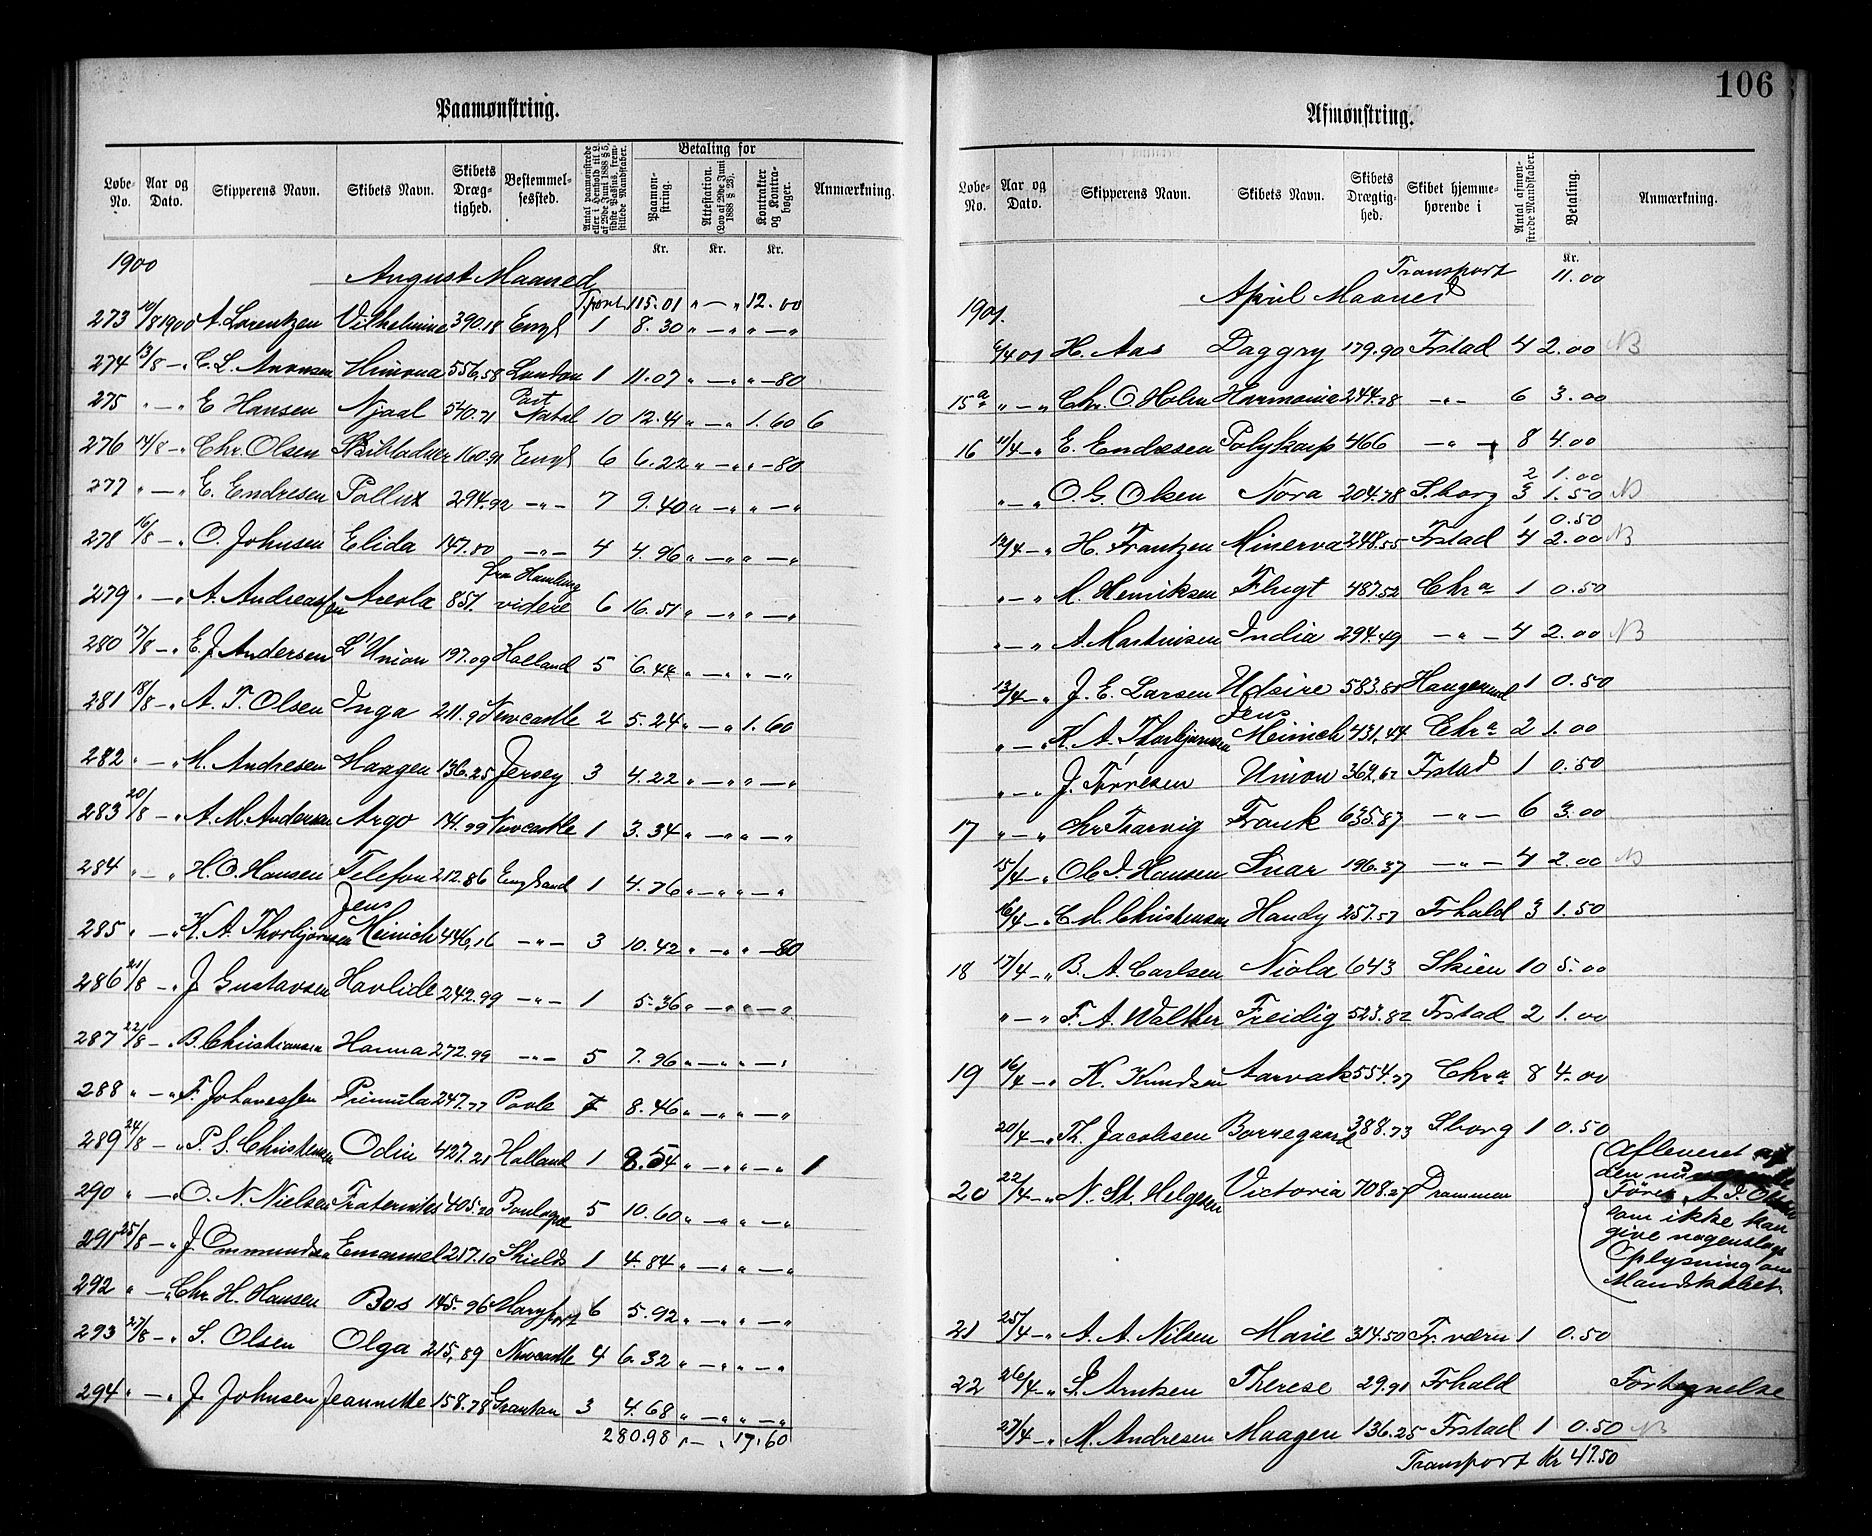 Paamønstring.
Løbe-No. Aar og Dato. Skipperens Navn. Skibets Navn. Skibets Dræg-tighed. Bestemmel-sessted. Antal paamønstrede eller i Henhold til L. af 29de Juni 1888 § 5, sidste Passus, frem-stillede Mandskaber. Betaling for Paamøn-string. Attestation. (Lov af 29de Juni 1888 § 28). Kontrakter og Kontra-bøger. Anmærkning.
Kr. Kr. Kr.
1900 August Maaned
Tport 115.01 " — " 12.00
273 10/8 1900 A. Lorentzen Vilhelmine 390.18 Engl 1 8.30 " — " " — "
274 13/8 — " C. L. Aronsen 556,58 London 1 11.07 " — " " — 80
275 " — " E Hansen Njaal 540.71 Port Natal 10 12.41 " — " 1.60 6
276 14/8 — " Chr. Olsen 160.91 Engl 6 6.22 " — " " — 80
277 " — " E. Endresen Pollux 294.92 — " — 7 9.40 " — " " — "
278 16/8 — " O. Johnsen Elida 147.80 — " — 4 4.96 " — " " — "
279 " — " A. Andreassen Areola 851. fra Hamburg videre 6 16.51 " — " " — "
280 17/8 — " E. J. Andersen L'Union 197.09 Holland 5 6.44 " — " " — "
281 18/8 — " A. T. Olsen Inga 211.9 Newcastle 2 5.24 " — " 1.60
282 " — " M. Andresen Haagen 136.25 Jersey 3 4.22 " — " " — "
283 20/8 — " A. M. Andersen Argo 141.99 Newcastle 1 3.34 " — " " — "
284 " — " H. O. Hansen Telefon 212.86 England 1 4.76 " — " " — "
285 " — " K. A. Thorbjørnsen Jens Meinich 446,16 — " — 3 10.42 " — " " — 80
286 21/8 — " J Gustavsen Havlide 242.99 — " — 1 5.36 " — " " — "
287 22/8 — " B. Christiansen Hanna 272.99 — " — 5 7.96 " — " " — "
288 " — " F. Johanessen Primula 247.77 Poole 7 8.46 " — " " — "
289 24/8 — " P. S. Christensen Odin 427.21 Holland 1 8.54 " — " " — " 1
290 " — " O. N. Nielsen Fraternites 405.20 Boulogne 5 10.60 " — " " — "
291 25/8 — " J. Ommundsen Emanuel 217.10 Shields 1 4.84 " — " " — "
292 " — " Chr. H. Hansen Bos 145.96 6 5.92 " — " " — "
293 27/8 — " S. Olsen Olga 215,89 Newcastle 4 6.32 " — " " — "
294 " — " J. Johnsen Jeannette 158.78 Grantan 3 4.68 " — " " — "
280.98 " — " 17.60
106
Afmønstring.
Løbe-No. Aar og Dato. Skipperens Navn. Skibets Navn. Skibets Drægtig-hed. Skibet hjemme-hørende i Antal afmøn-strede Mandskaber. Betaling. Anmærkning.
Kr.
Transport 11.00
1901. April Maaned
6/4 01 H. Aas Daggry 179.90 Frstad 4 2.00 NB
15a " — " Chr. O. Holm Harmonie 244.28 — " — 6 3.00
16 11/4 — " E. Endresen Polykarp 466 — " — 8 4.00
2 1.00
" — " O. G. Olsen Nora 204.78 Sborg 3 1.50 NB
1 0.50
12/4 — " H. Frantzen Minerva 248.55 Frstad 4 2.00 NB
" — " M. Henriksen Flugt 487.52 Chr a 1 0.50
" — " A. Martinsen India 294.49 — " — 4 2.00 NB
13/4 — " J. E. Larsen Udsire 583.81 Haugesund 1 0.50
" — " K. A. Thorbjørnsen Jens Meinich 431,44 Chr a 2 1.00
" — " J. Tørresen Union 362,62 Frstad 1 0.50
17 " — " Frank 635.87 — " — 6 3.00
15/4 — " Ole I. Hansen Snar 196.37 — " — 4 2.00 NB
16/4 — " C M. Christensen Handy 257.57 Frhald 3 1.50
18 17/4 — " B. A. Carlsen Niola 643 Skien 10 5.00
" — " F. A. Walther Freidig 523.82 Frstad 2 1.00
19 16/4 — " K. Knudsen Aarvak 554.77 Chr a 8 4.00
20/4 — " Th. Jacobsen Borregaard 388.73 Sborg 1 0.50
20 22/4 — " N. St. Helgesen Victoria 708.27 Drammen
Afleveret af
den
Fører A. T. Olsen
som ikke kan
give nogenslags
Oplysning om
Mandskabet.
21 25/4 — " A. A. Nilsen Marie 314.50 Fr. værn 1 0.50
22 26/4 — " S. Arntsen Therese 29.91 Frhald Fortegnelse
27/4 — " M. Andresen Haagen 136.25 Frstad 1 0.50 NB
Transport Kr 47.50